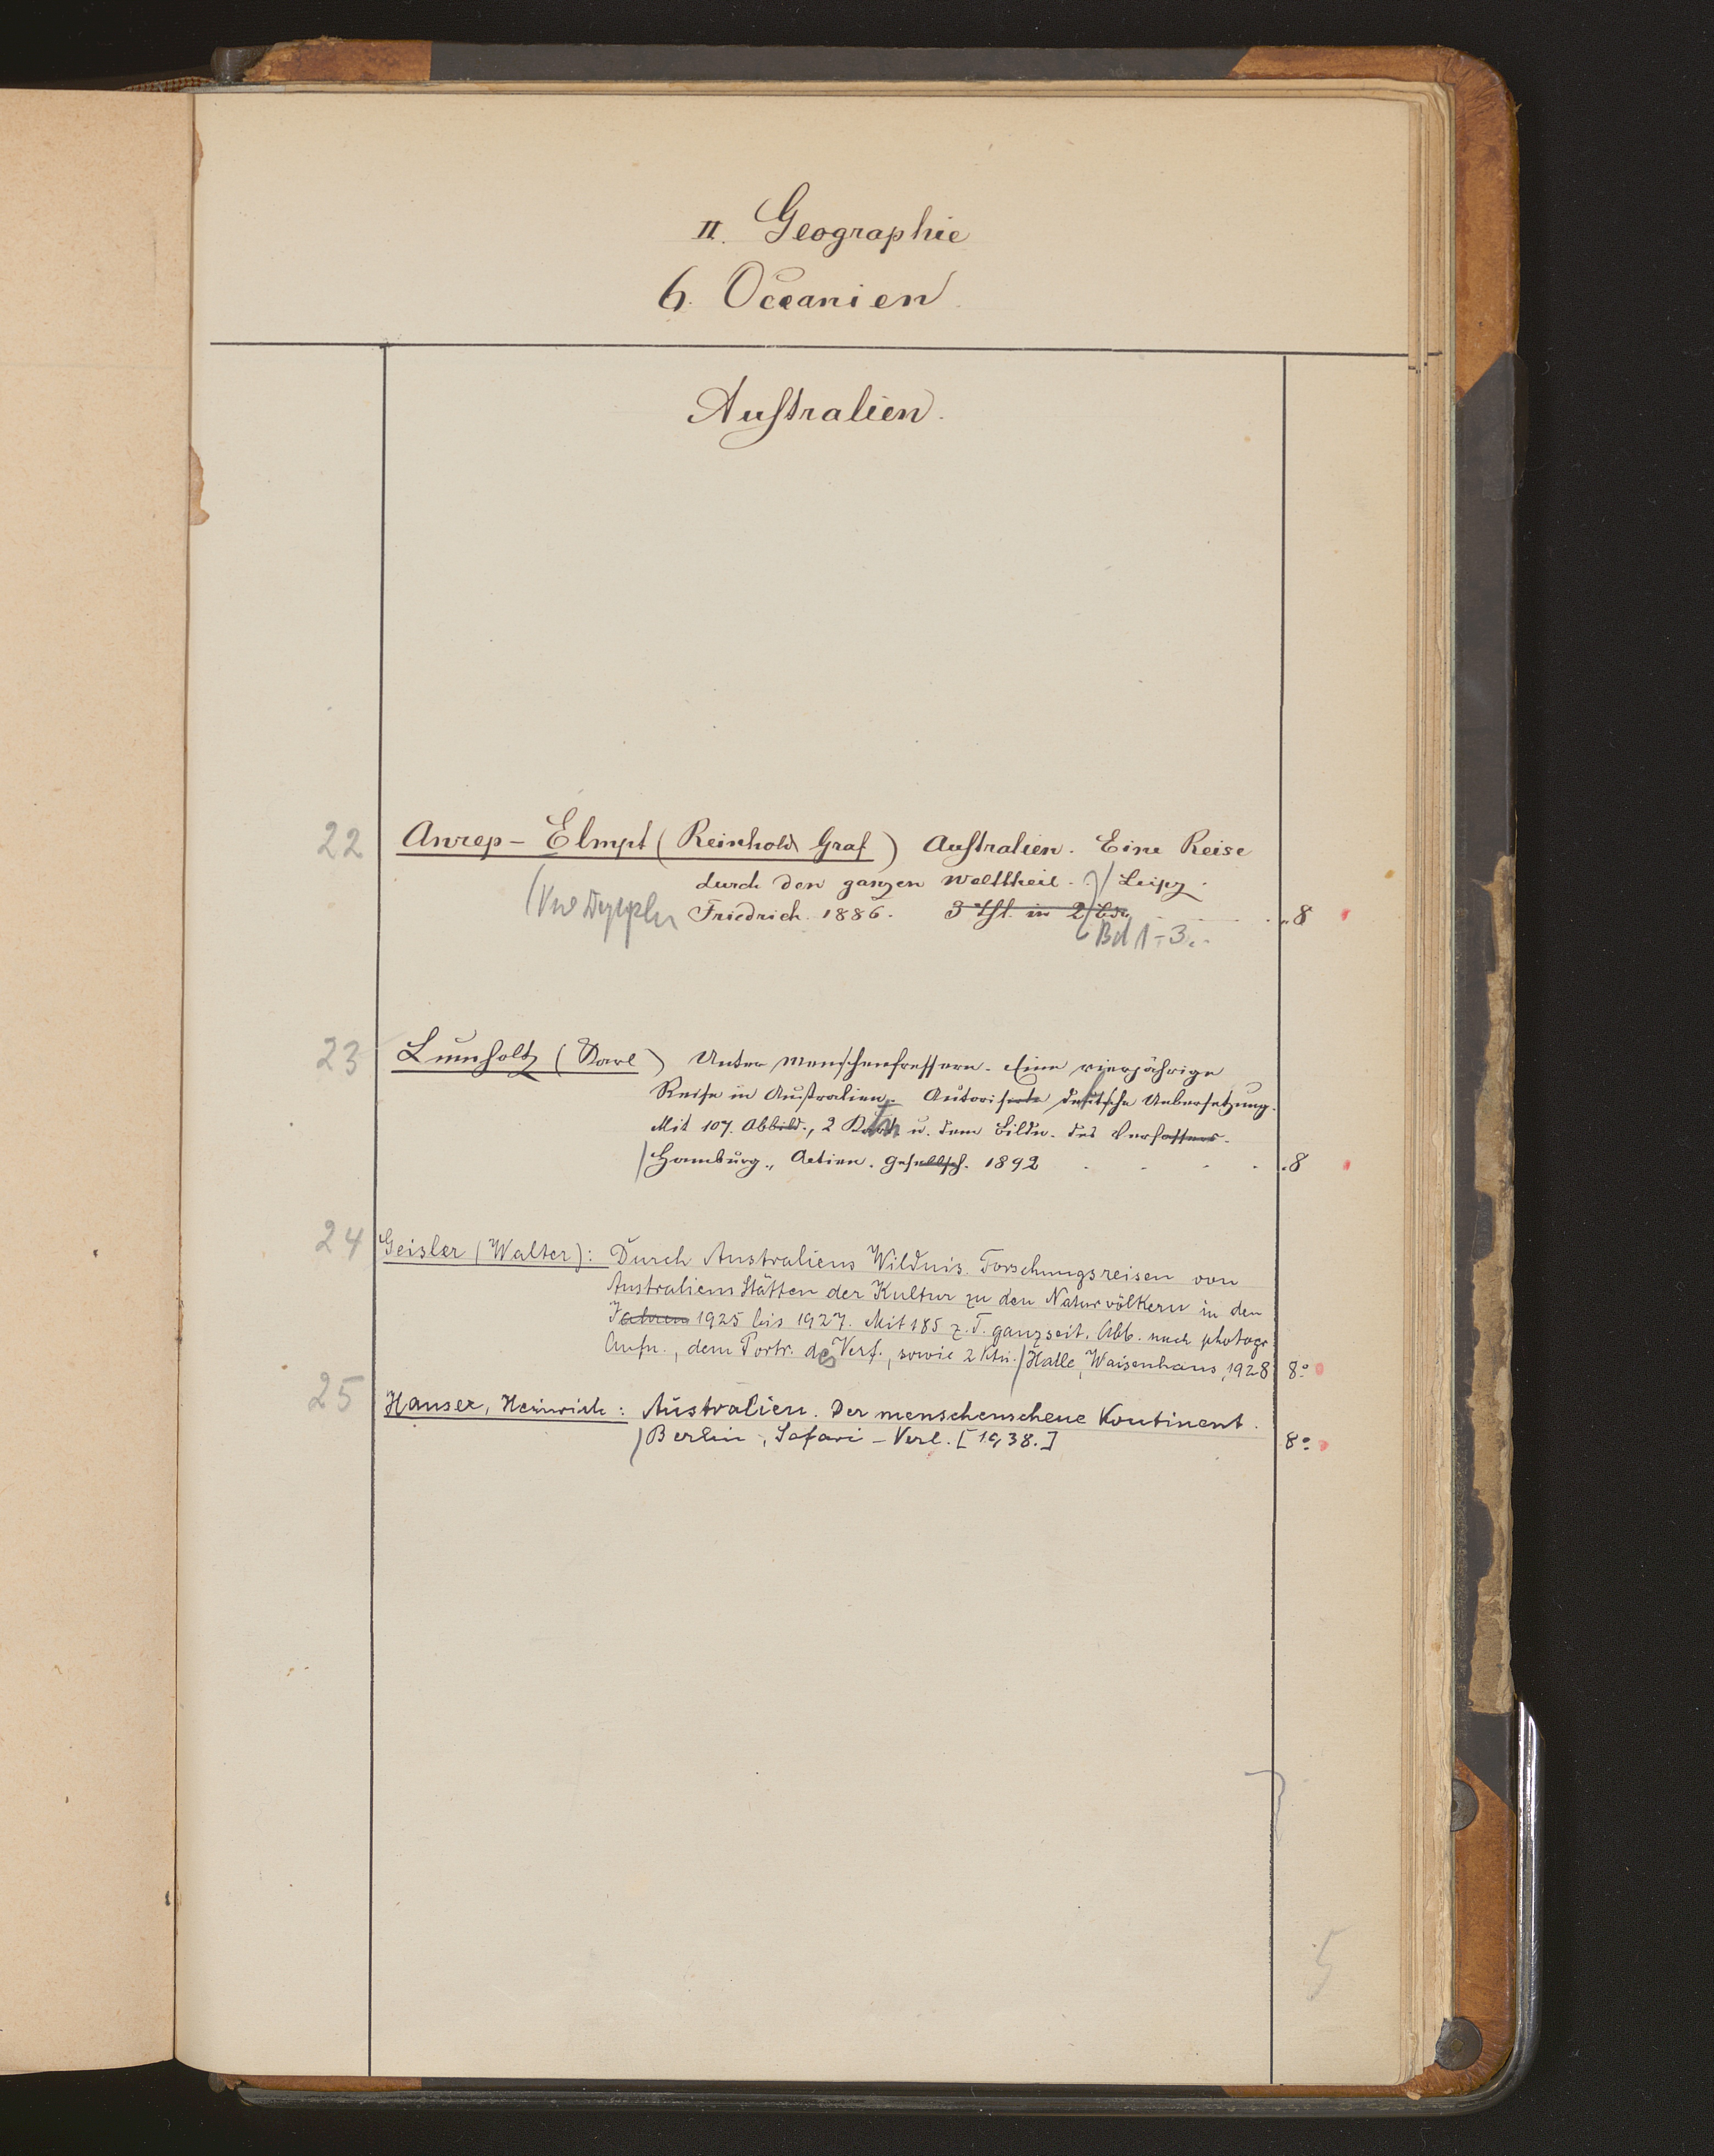 II. Geographie
6. Oceanien
Australien.
22 Anrep-Elmpt (Reinhold Graf) Australien. Eine Reise
durch den ganzen Welttheil. / Leipz.
Friedrich. 1886. 3 Thl. in 2 Bdn . „8
Bd 1-3.
23 Lumholtz (Karl) Unter Menschenfressern. Eine vierjährige
Reise in Australien. Autorisirte deutsche Uebersetzung.
Mit 107. Abbild., 2 Kart u. dem Bildn. des Verfassers.
/ Hamburg., Actien. Gesellsch. 1892 . . . . .8
24 Geisler (Walter): Durch Australiens Wildnis. Forschungsreisen von
Australiens Stätten der Kultur zu den Naturvölkern in den
Jahren 1925 bis 1927. Mit 185 z. T. ganzseit. Abb. nach photogr.
Aufn., dem Portr. des Verf., sowie 2 Ktn. / Halle, Waisenhaus, 1928 8°
25 Hauser, Heinrich: Australien. Der menschenscheue Kontinent.
/ Berlin, Safari-Verl. [1938.] 8°
5